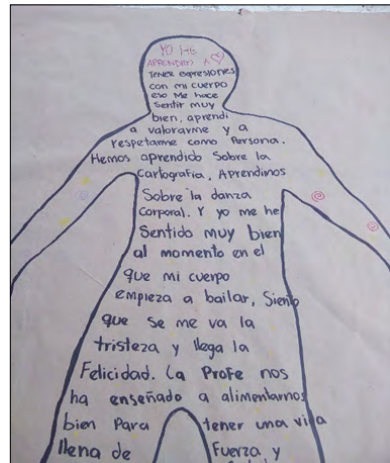 YO HE
APRENDIDO A
tener expresiones
con mi cuerpo
eso Me hace
Sentir muy
bien, aprendi
a valorarme y a
respetarme como Persona.
Hemos aprendido Sobre la
Cartografia, Aprendimos
Sobre la danza
Corporal. Y yo me he
Sentido muy bien
al momento en el
que mi cuerpo
empieza a bailar, Siento
que se me va la
tristeza y llega la
Felicidad. La Profe nos
ha enseñado a alimentarnos
bien Para tener una vida
llena de Fuerza y